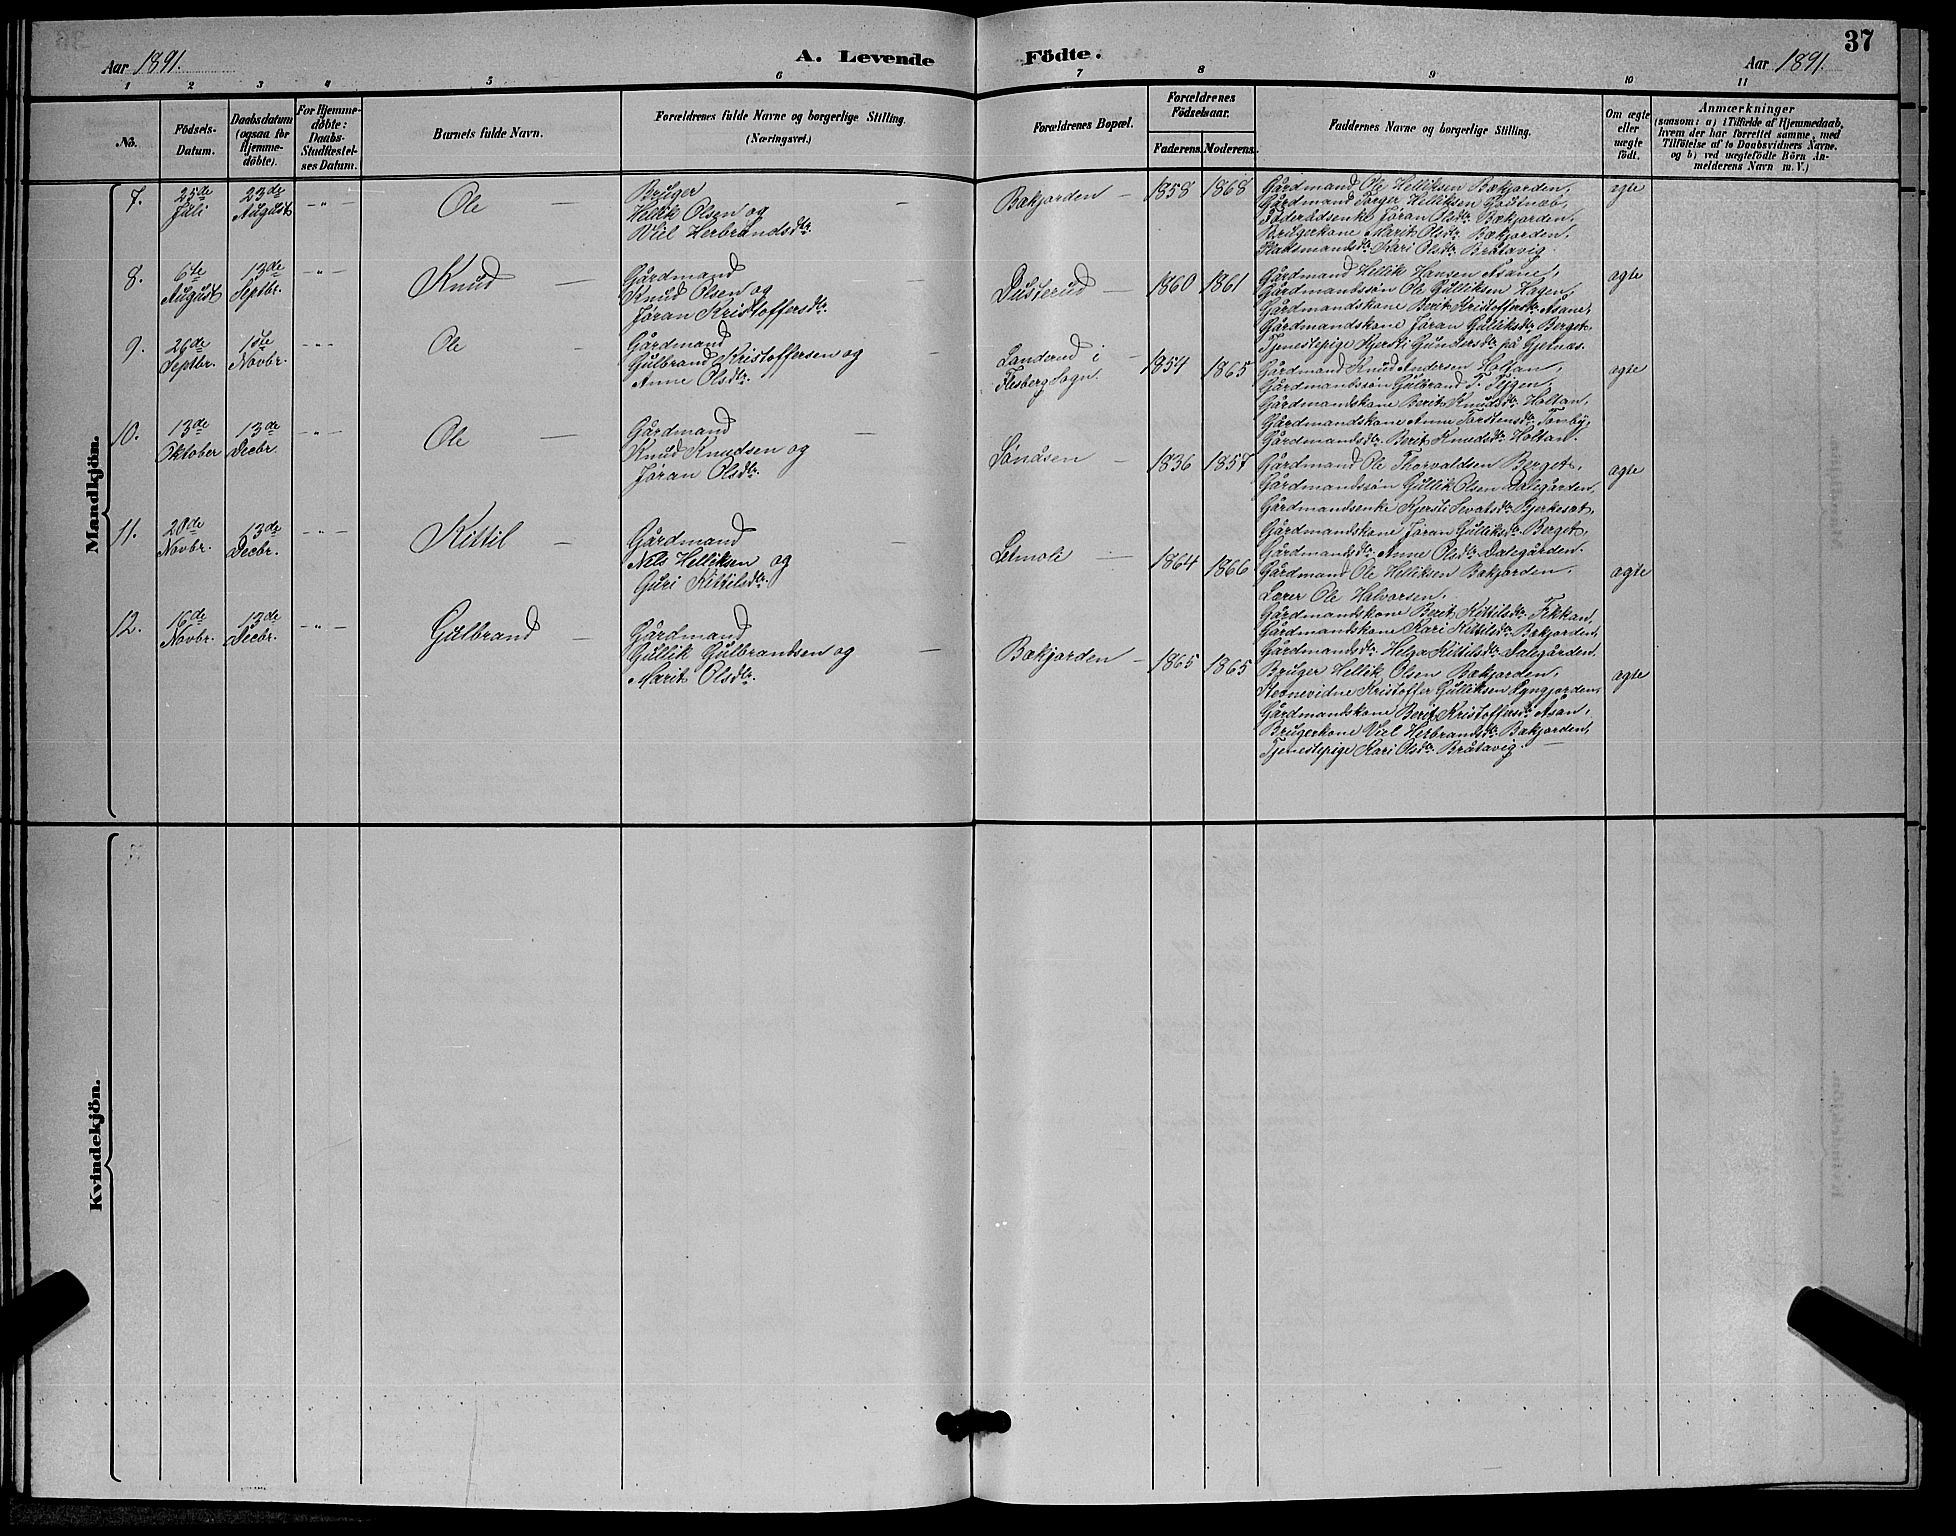 Aar 1891.
A. Levende Födte.
Aar 1891.
37
1 2 3 4 5 6 7 8 9 10 11
No.
Födsels-Datum.
Daabsdatum (ogsaa for Hjemme-döbte).
For Hjemme-döbte: Daabs-Stadfæstel-ses Datum.
Barnets fulde Navn.
Forældrenes fulde Navne og borgerlige Stilling. (Næringsvei.)
Forældrenes Bopæl.
Forældrenes Födselsaar.
Faderens. Moderens.
Faddernes Navne og borgerlige Stilling.
Om ægte eller uægte födt.
Anmærkninger
(saasom: a) i Tilfælde af Hjemmedaab,
hvem der har forrettet samme, med
Tilföielse af to Daabsvidners Navne,
og b) ved uægtefödte Börn An-
melderens Navn m. V.)
Mandkjön.
7. 25de Juli 23de August - " - Ole
Brüger
Hellik Olsen og
Viel Herbrandsdtr.
Bakjorden 1858 1868
Gårdmand Ole Helliksen Bakjorden,
Gårdmand Torger Helliksen
Föderådsenke Jøran Olsdtr. Bakjorden,
Brugerkone Marit Olsdtr. Bakjorden,
Pladsmandsdtr. Kari Olsdtr. Bråtavig
ægte
8. 6te August 13de Septbr. - " - Knud
Gårdmand
Knud Olsen og
Jøran Kristoffersdtr.
Dusterud 1860 1861
Gårdmand Hellik Hansen Åsane,
Gårdmandssön Ole Gulliksen Hagen,
Gårdmandskone Berit Kristoffersdtr. Åsane,
Gårdmandskone Jøran Gulliksdtr. Berget,
Tjenestepige Kjersti Gundersdtr. på Gjetnæs.
ægte
9. 26de Septbr. 1ste Novbr. - " - Ole
Gårdmand
Gulbrand Kristoffersen og
Anne Olsdtr.
Landerud i
Flesberg Sogn.
1854 1865
Gårdmand Knud Andersen Holtan,
Gårdmandssön Gulbrand T. Tejgen,
Gårdmandskone Berit Knudsdtr. Holtan,
Gårdmandskone Anne Torstensdtr.
Gårdmandsdtr. Berit Knudsdtr. Holtan.
ægte
10. 13de Oktober 13de Decbr. - " - Ole
Gårdmand
Knud Knudsen og
Jøran Olsdtr.
Lönåsen 1836 1857
Gårdmand Ole Thorvaldsen Berget,
Gårdmandssön Gullik Olsen Dalegården,
Gårdmandsenke Kjersti Sevatsdtr. Bjerkeset,
Gårdmandskone Jøran Gulliksdtr. Berget,
Gårdmandsdtr. Anne Olsdtr. Dalegården.
ægte
11. 20de Novbr. 13de Decbr. - " - Kittil
Gårdmand
Nels Helliksen og
Guri Kittilsdtr.
Letmoli 1864 1866
Gårdmand Ole Helliksen Bakjorden,
Lærer Ole Halvorsen,
Gårdmandskone Berit Kittilsdtr. Fikkan,
Gårdmandskone Kari Kittilsdtr. Bakjorden,
Gårdmandsdtr. Helga Kittilsdtr. Dalegården.
ægte
12. 16de Novbr. 13de Decbr. - " - Gulbrand
Gårdmand
Gullik Gulbrandsen og
Marit Olsdtr.
Bakjorden 1865 1865
Bruger Hellik Olsen Bakjorden,
Stevnevidne Kristoffer Gulliksen
Gårdmandskone Berit Kristoffersdtr. Åsan,
Brugerkone Viel Herbrandsdtr. Bakjorden,
Tjenestepige Kari Olsdtr. Bråtavig.
ægte
Kvindekjön.